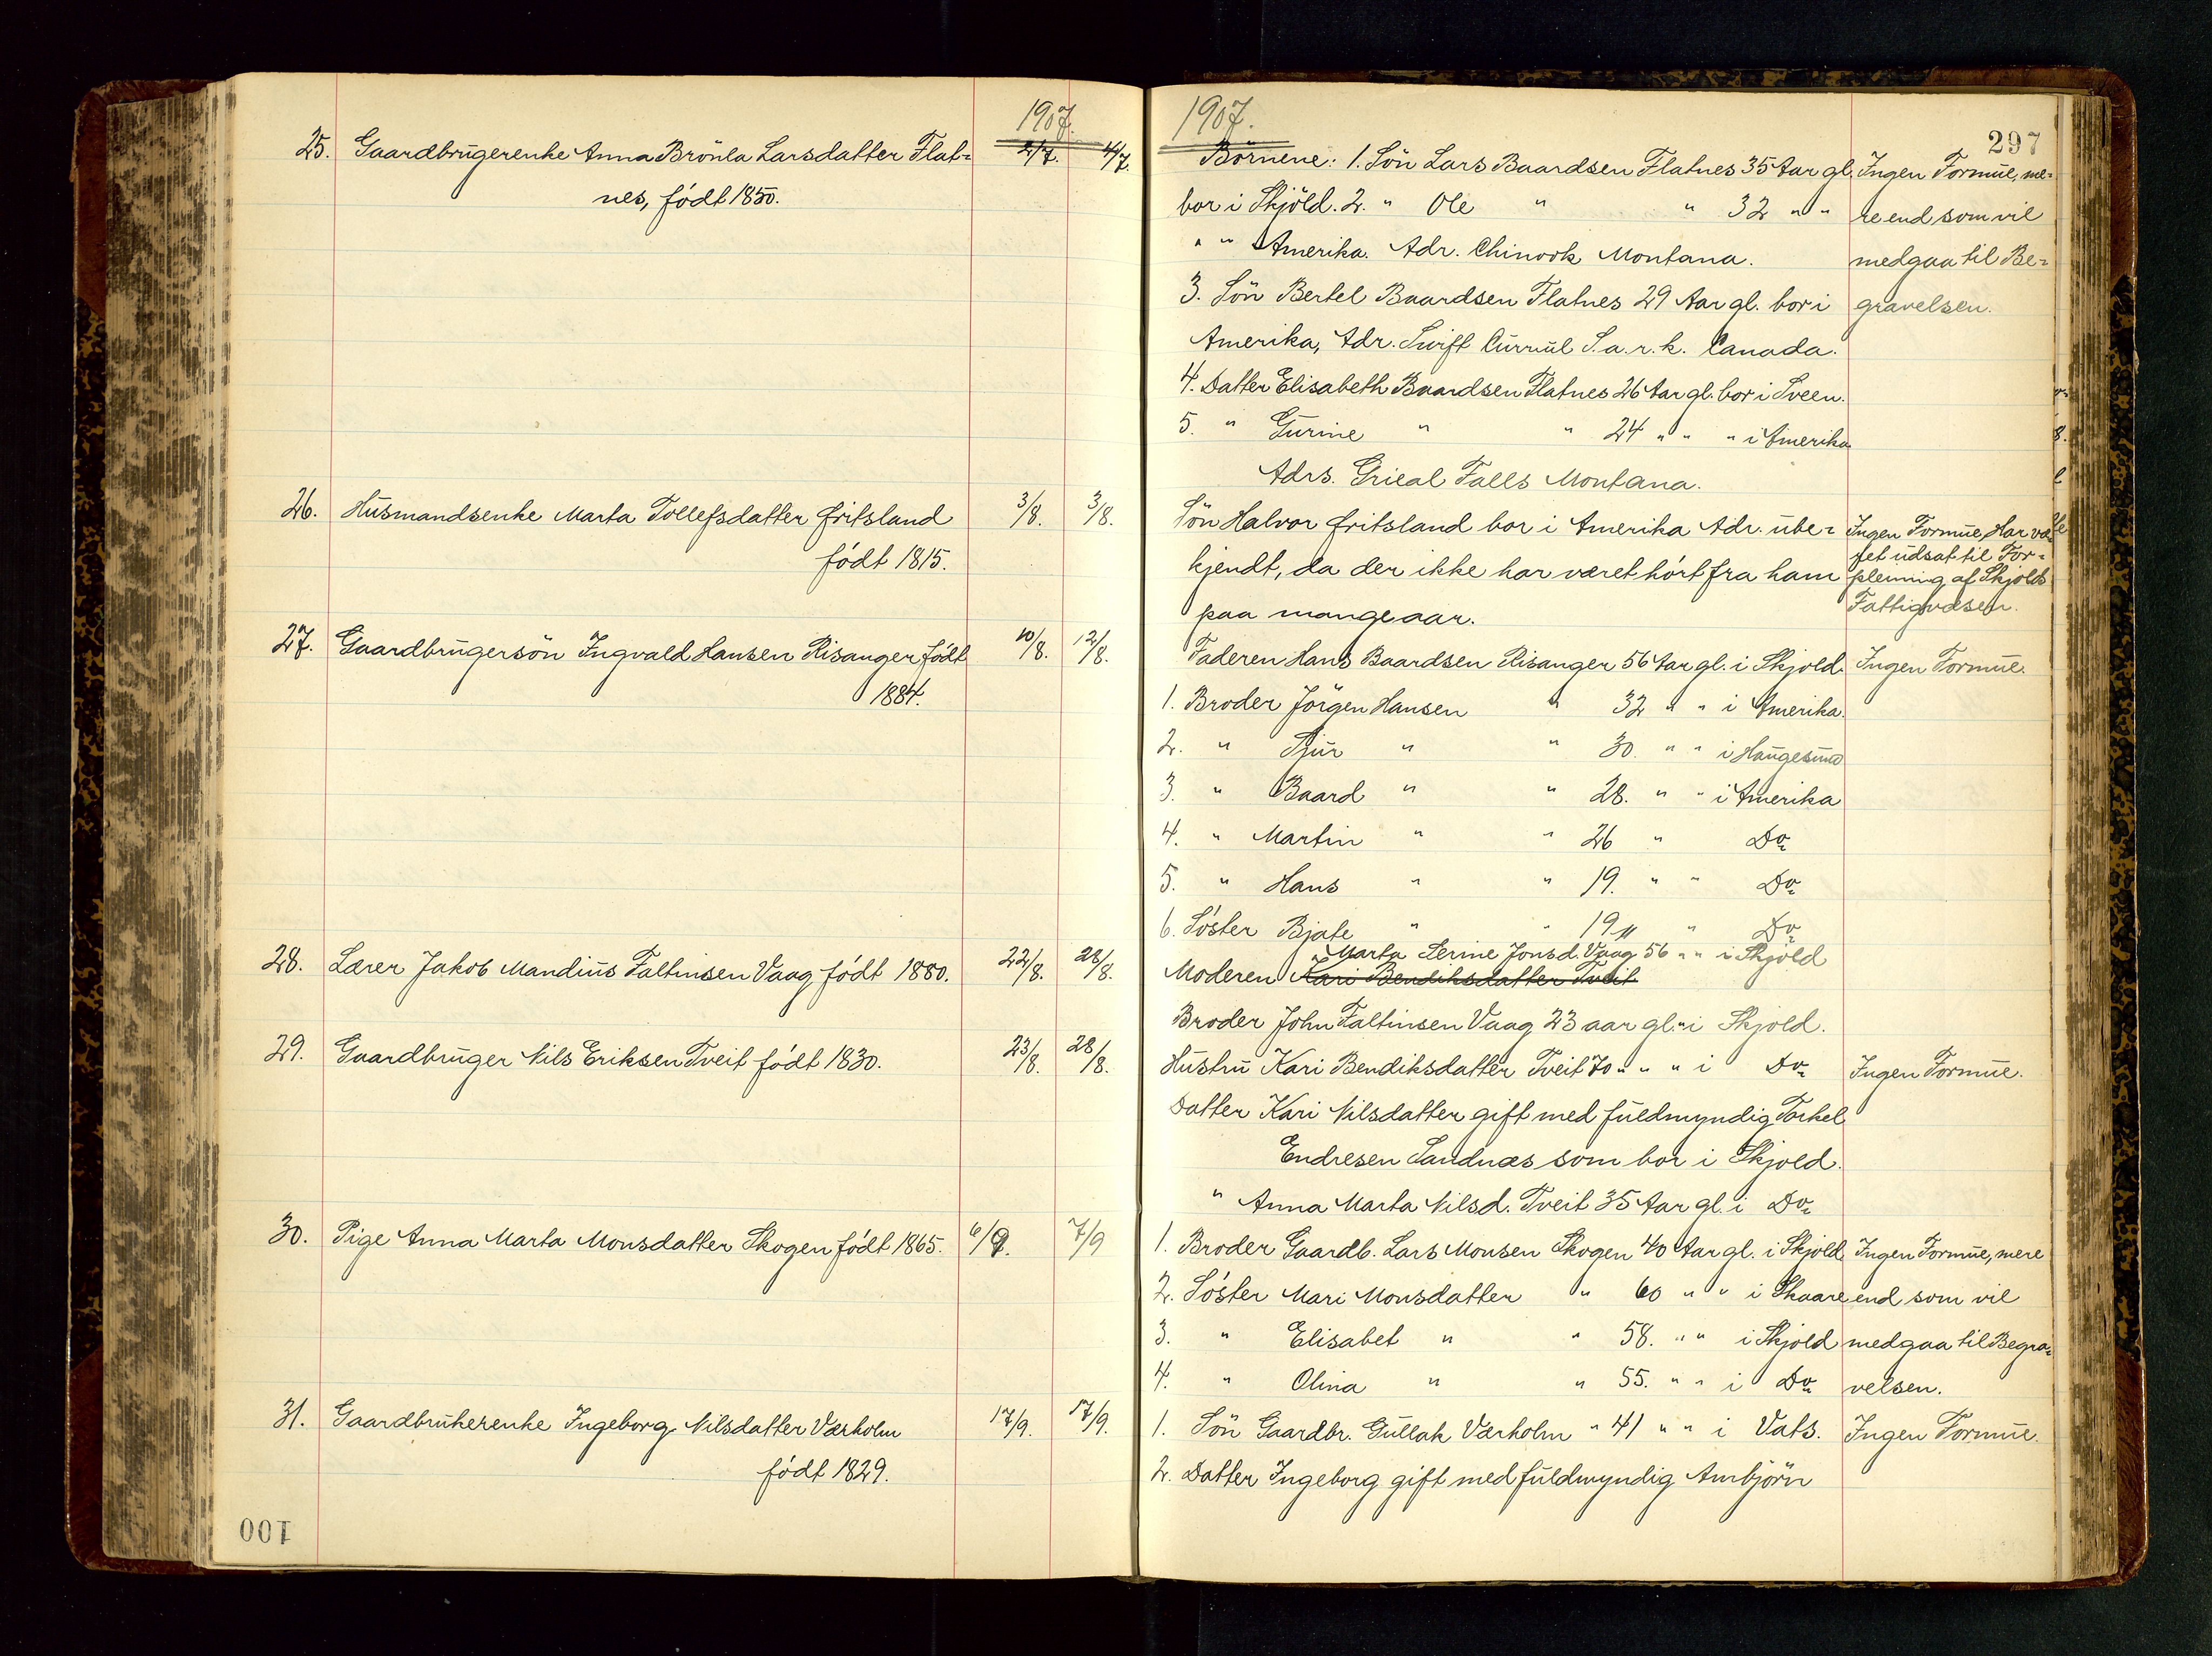 1907.
25. Gaardbrugerenke Anna Brönla Larsdatter Flat=
nes, födt 1850.
2/7. 4/7.
26. Husmandsenke Marta Tollefsdatter Fritsland
födt 1815.
3/8. 3/8.
27. Gaardbrugersön Ingvald Hansen Risanger födt
1884.
10/8. 12/8.
28. Lærer Jakob Mandius Faltinsen Vaag födt 1880.
22/8. 28/8.
29. Gaardbruger Nils Eriksen Tveit födt 1830.
23/8. 28/8.
30. Pige Anna Marta Monsdatter Skogen födt 1865.
6/9. 7/9
31. Gaardbrukerenke Ingeborg Nilsdatter Værholm
födt 1829.
17/9. 17/9.
100
1907.
297
Börnene: 1. Sön Lars Baardsen Flatnes 35 Aar gl.
bor i Skjöld. 2. " Ole " " 32 " "
" " Amerika. Adr. Chinook Montana.
3. Sön Bertel Baardsen Flatnes 29 Aar gl. bor i
Amerika, Adr. Swift Currul S.a.r.k. Canada.
4. Datter Elisabeth Baardsen Flatnes 26 Aar gl. bor i Sveen.
5. " Gurine " " 24 " " " i Amerika
Adrs. Grieal Falls Montana.
Ingen Formue, me=
re end som vil
medgaa til Be=
gravelsen.
Sön Halvor Fritsland bor i Amerika Adr. ube=
kjendt, da der ikke har været hört fra ham
paa mange aar.
Ingen Formue, Har væ=
ret udsat til For=
pleining af Skjolds
Fattigvæsen.
Faderen Hans Baardsen Risanger 56 Aar gl. i Skjold. Ingen Formue.
1. Broder Jörgen Hansen " 32 " " i Amerika.
2. " Sjur " " 30. " " i Haugesund
3. " Baard " " 28. " " i Amerika
4. " Martin " " 26 " Do
5. " Hans " " 19. " " Do
6. Söster Bjate " " 19 " " Do
Marta Serine Jonsd. Vaag 56 " " i Skjöld
Moderen Kari Bendiksdatter Tveit
Broder John Faltinsen Vaag 23 aar gl. " i Skjold.
Hustru Kari Bendiksdatter Tveit 70 " " " i Do Ingen Formue.
Datter Kari Nilsdatter gift med fuldmyndig Torkel
Endresen Sandnæs som bor i Skjold.
" Anna Marta Nilsd. Tveit 35 Aar gl. i Do
1. Broder Gaardb. Lars Monsen Skogen 40 Aar gl. i Skjold Ingen Formue, mere
2. Söster Mari Monsdatter " 60 " " i Skaare end som vil
3. " Elisabet " " 58. " " i Skjold medgaa til Begra=
4. " Olina " " 55. " " i Do velsen.
1. Sön Gaardbr. Gullak Værholm " 41 " " i Vats. Ingen Formue.
2. Datter Ingeborg gift med fuldmyndig Ambjörn